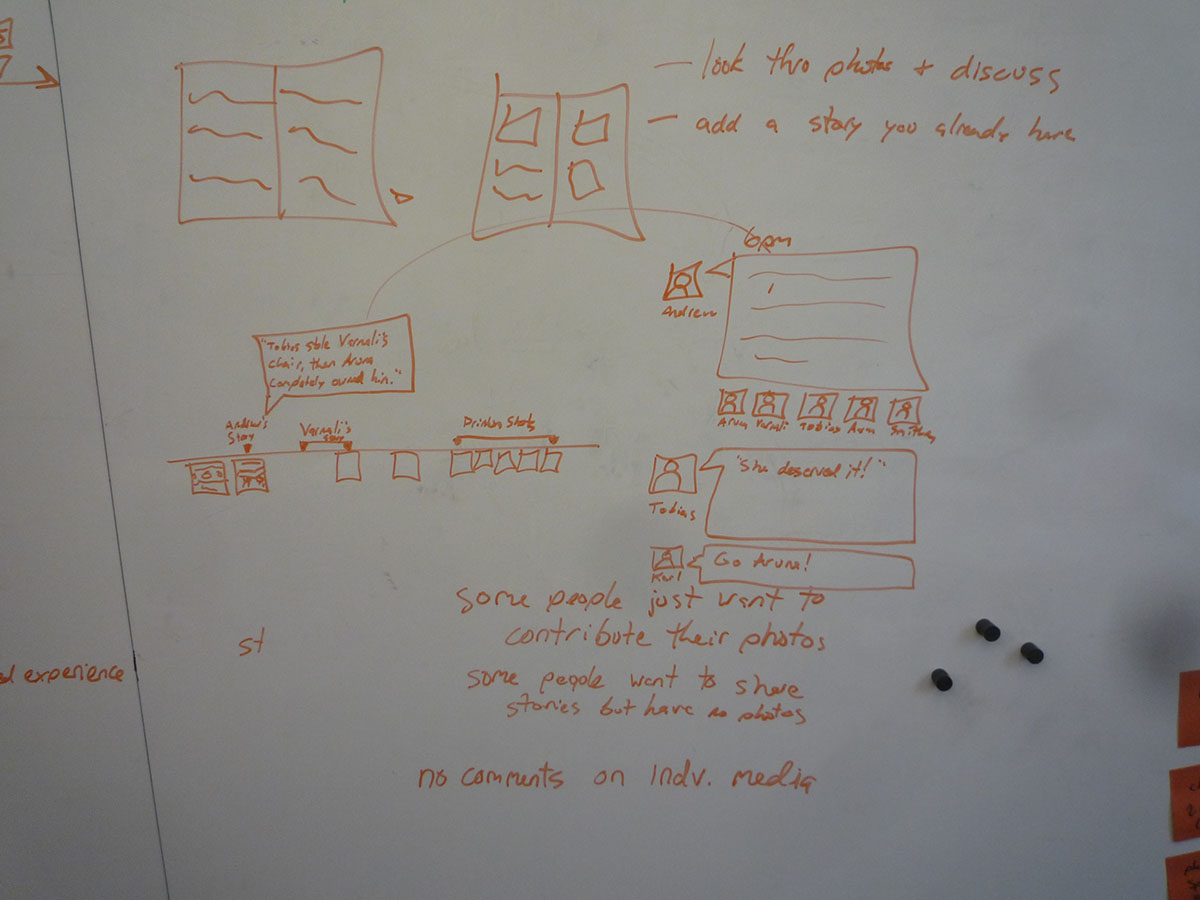 — look thro photos + discuss
— add a story you already have
6pm
Andrew
"Tobias stole Varnali's
chair, then Aruna
completely owned him."
Andrew's
Story
Varnali's
Story
Drinking Shots
Aruna
Varnali
Tobias
"She deserved it!"
Tobias
Go Aruna!
Karl
some people just want to
contribute their photos
some people want to share
stories but have no photos
st
experience
no comments on indv. media